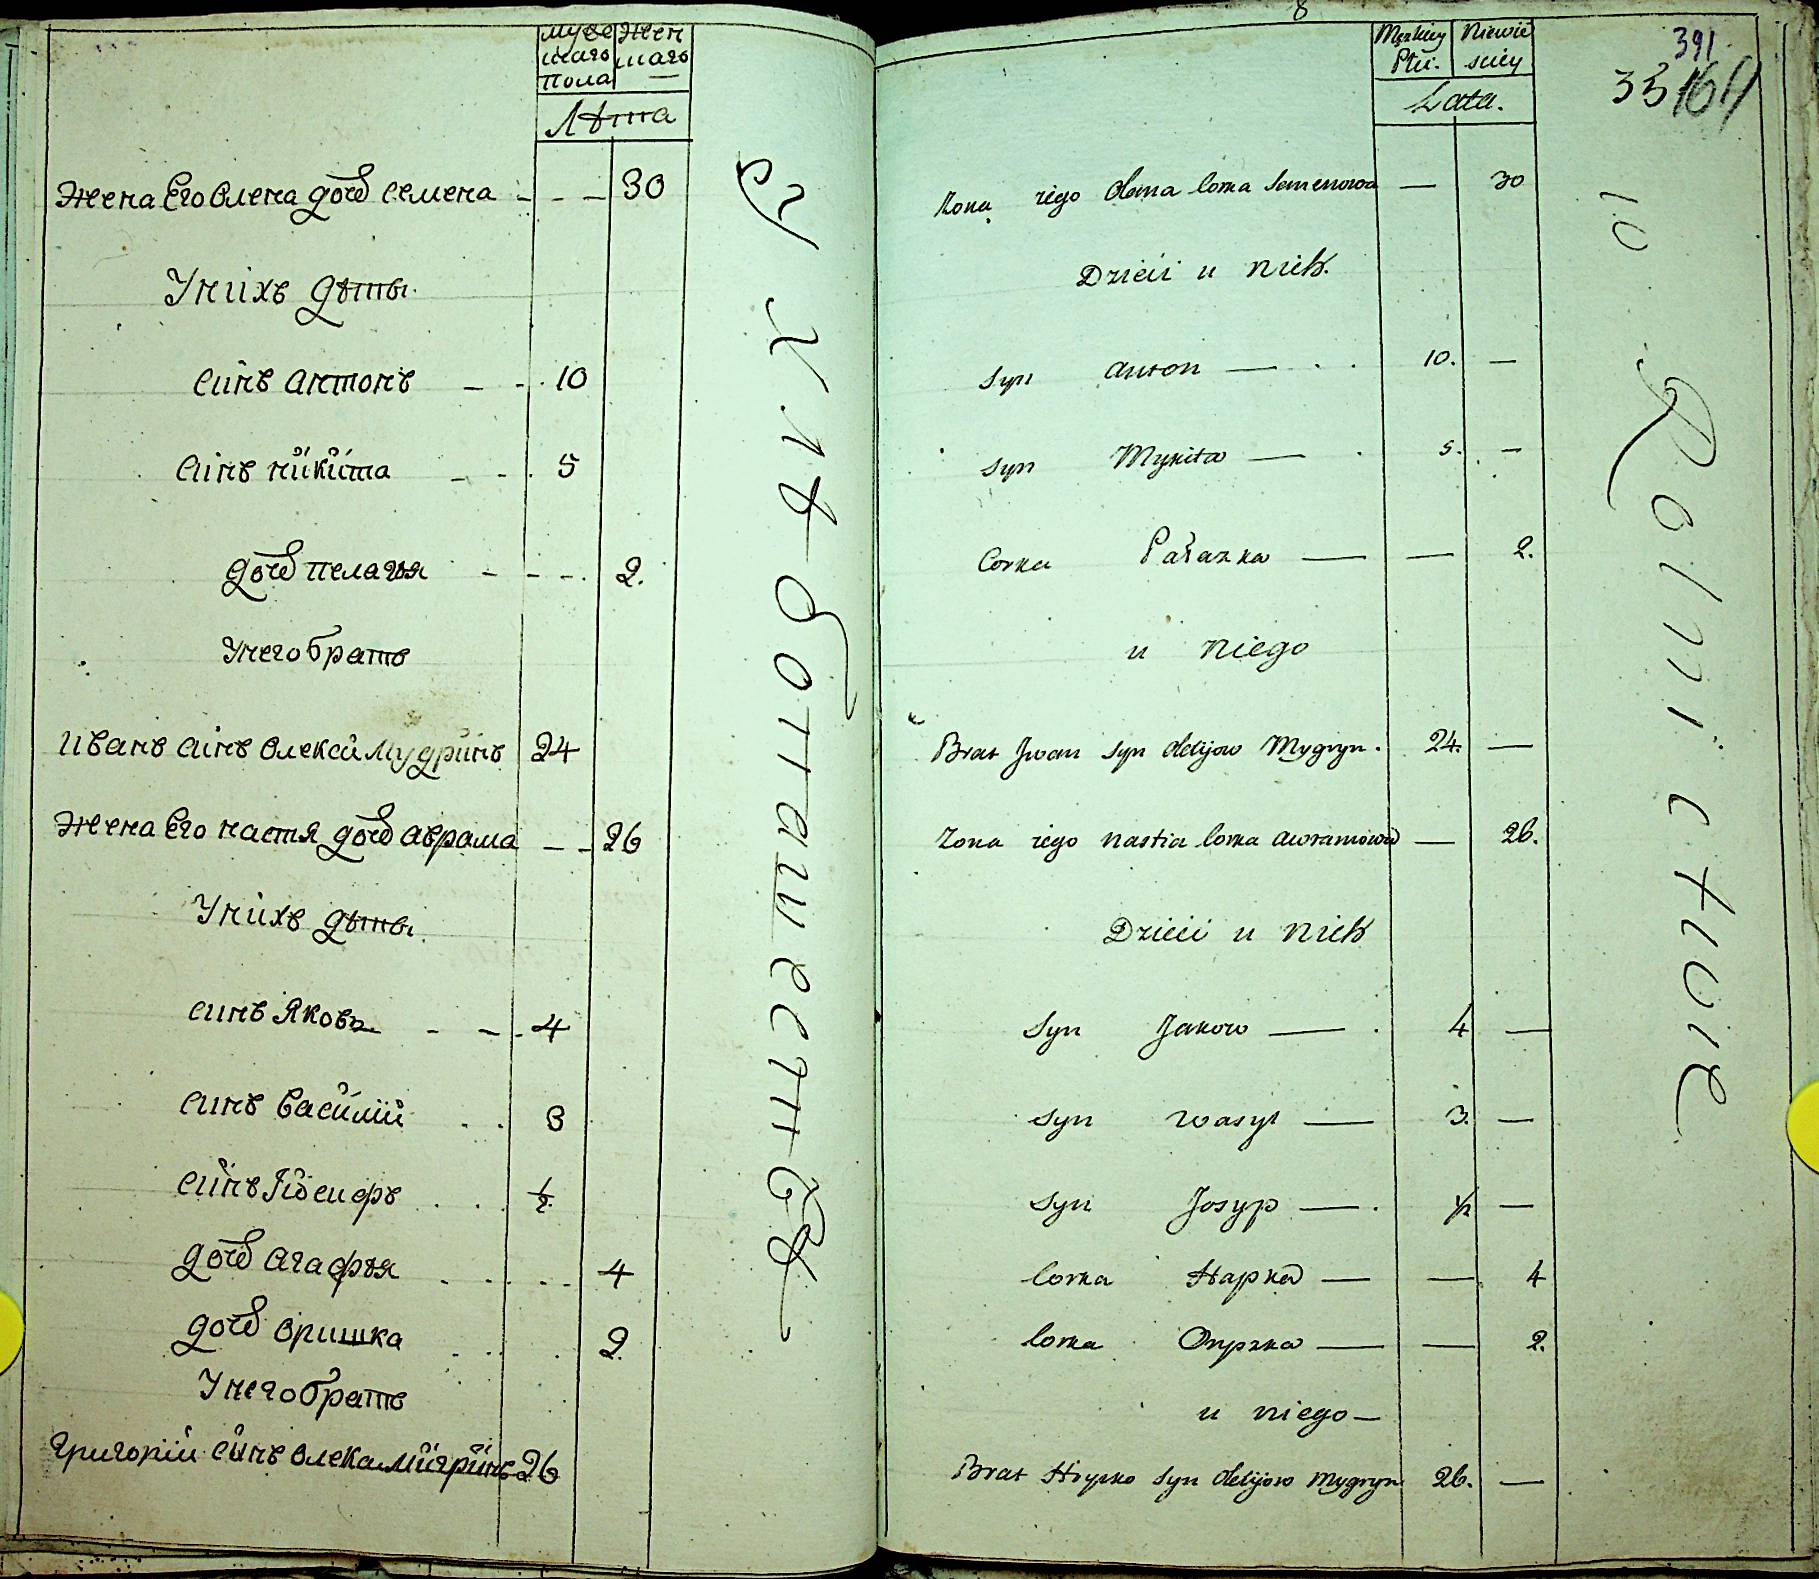 мужескаго пола
Женскаго
Лѣта
Жена Его Олена дочь Семена - - - 30
У нихъ дѣти
Синъ Антонъ - - 10
Синъ Никита - - 5
дочь Пелагія - - - 2.
У него братъ
Иванъ Синъ Олексѣй Мудринъ 24
Жена Его Настя дочь Аврама - - 26
У нихъ дѣти
Синъ Яковъ - - 4
Синъ Василій . . 3
Синъ Іосифъ . . ½
дочь Агафія . . . 4
дочь Оришка . . . 2.
У него братъ
Григорій Синъ Олекси Мигринъ 26
в Хлѣбопашествѣ
8
Męzkiey Płci.
Niewieściey
Lata.
391
33
164
Zona iego Olena Corka Semenowa — 30
Dzieci u Nich.
Syn Anton — . . 10. —
Syn Mykita — . 5. . —
Corka Pałazka — — 2.
u Niego
Brat Jwan Syn Olexijow Mygryn. 24. —
Zona iego Nastia Corka Awramowa — 26.
Dzieci u Nich
Syn Jakow — . 4 —
Syn Wasyl — 3. —
Syn Josyp — . ½ —
Corka Hapka — — 4
Corka Oryszka — — 2.
u niego —
Brat Hryzko Syn Olexijow Mygryn 26. —
10 Rolnictwie